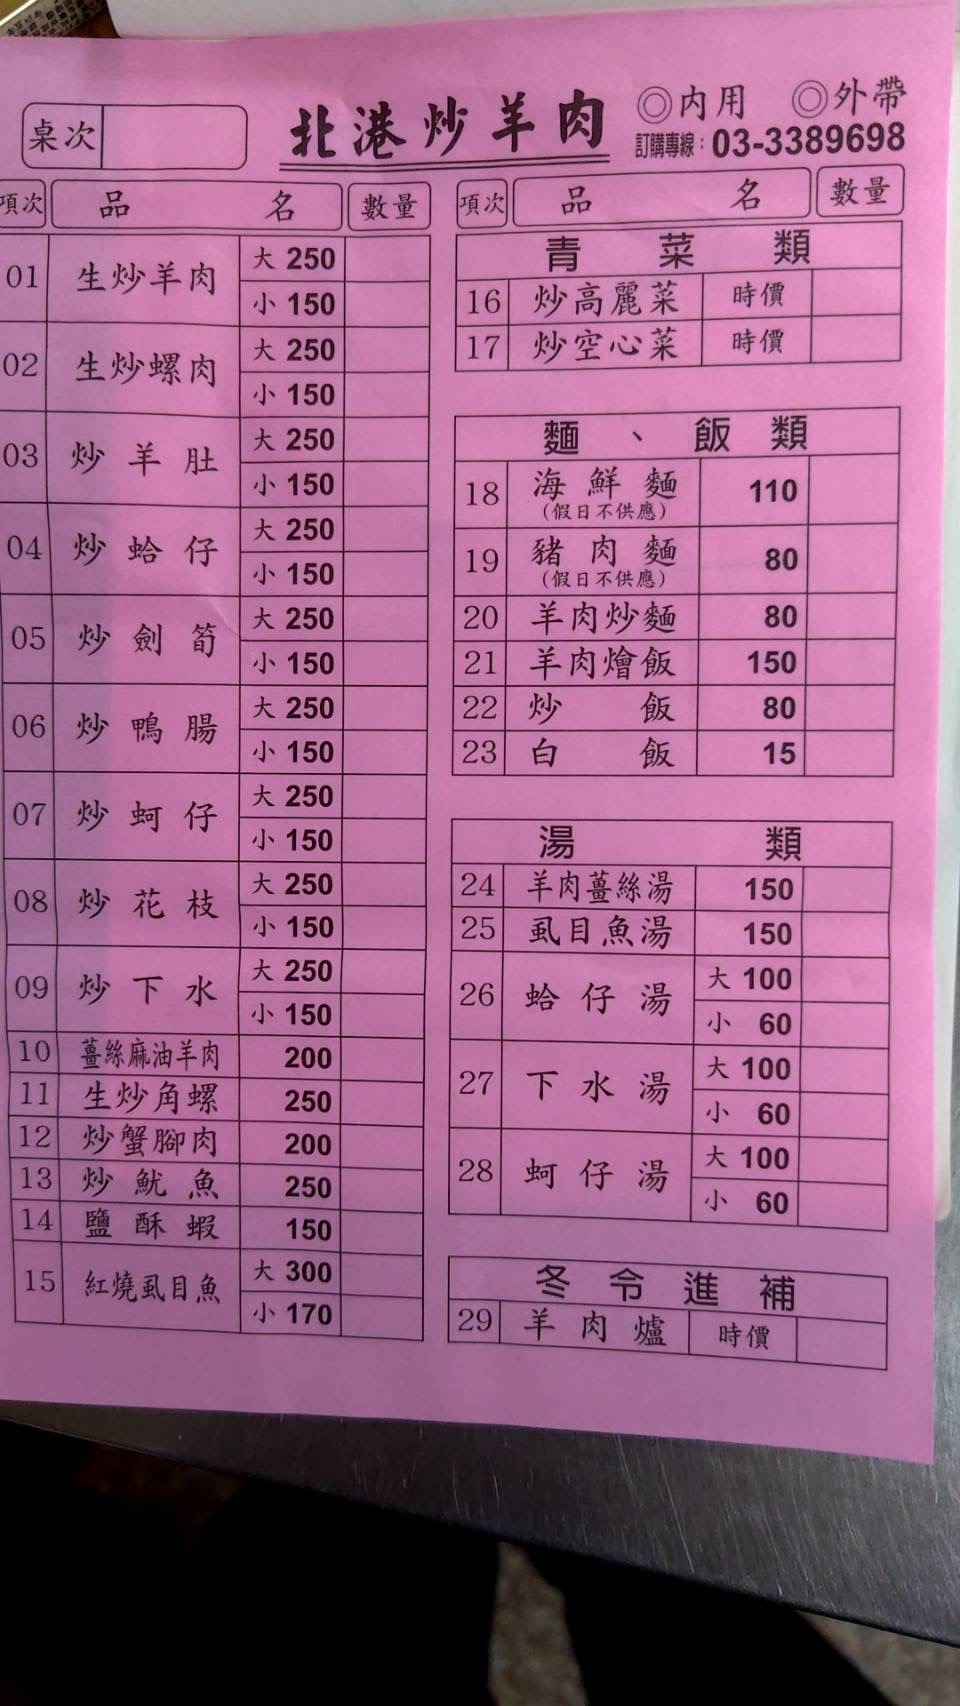 桌次
北港炒羊肉
◎內用 ◎外帶
訂購專線：03-3389698
項次 品名 數量
01 生炒羊肉 大 250
小 150
02 生炒螺肉 大 250
小 150
03 炒羊肚 大 250
小 150
04 炒蛤仔 大 250
小 150
05 炒劍筍 大 250
小 150
06 炒鴨腸 大 250
小 150
07 炒蚵仔 大 250
小 150
08 炒花枝 大 250
小 150
09 炒下水 大 250
小 150
10 薑絲麻油羊肉 200
11 生炒角螺 250
12 炒蟹腳肉 200
13 炒魷魚 250
14 鹽酥蝦 150
15 紅燒虱目魚 大 300
小 170
項次 品名 數量
青菜類
16 炒高麗菜 時價
17 炒空心菜 時價
麵、飯類
18 海鮮麵 110
(假日不供應)
19 豬肉麵 80
(假日不供應)
20 羊肉炒麵 80
21 羊肉燴飯 150
22 炒飯 80
23 白飯 15
湯類
24 羊肉薑絲湯 150
25 虱目魚湯 150
26 蛤仔湯 大 100
小 60
27 下水湯 大 100
小 60
28 蚵仔湯 大 100
小 60
冬令進補
29 羊肉爐 時價